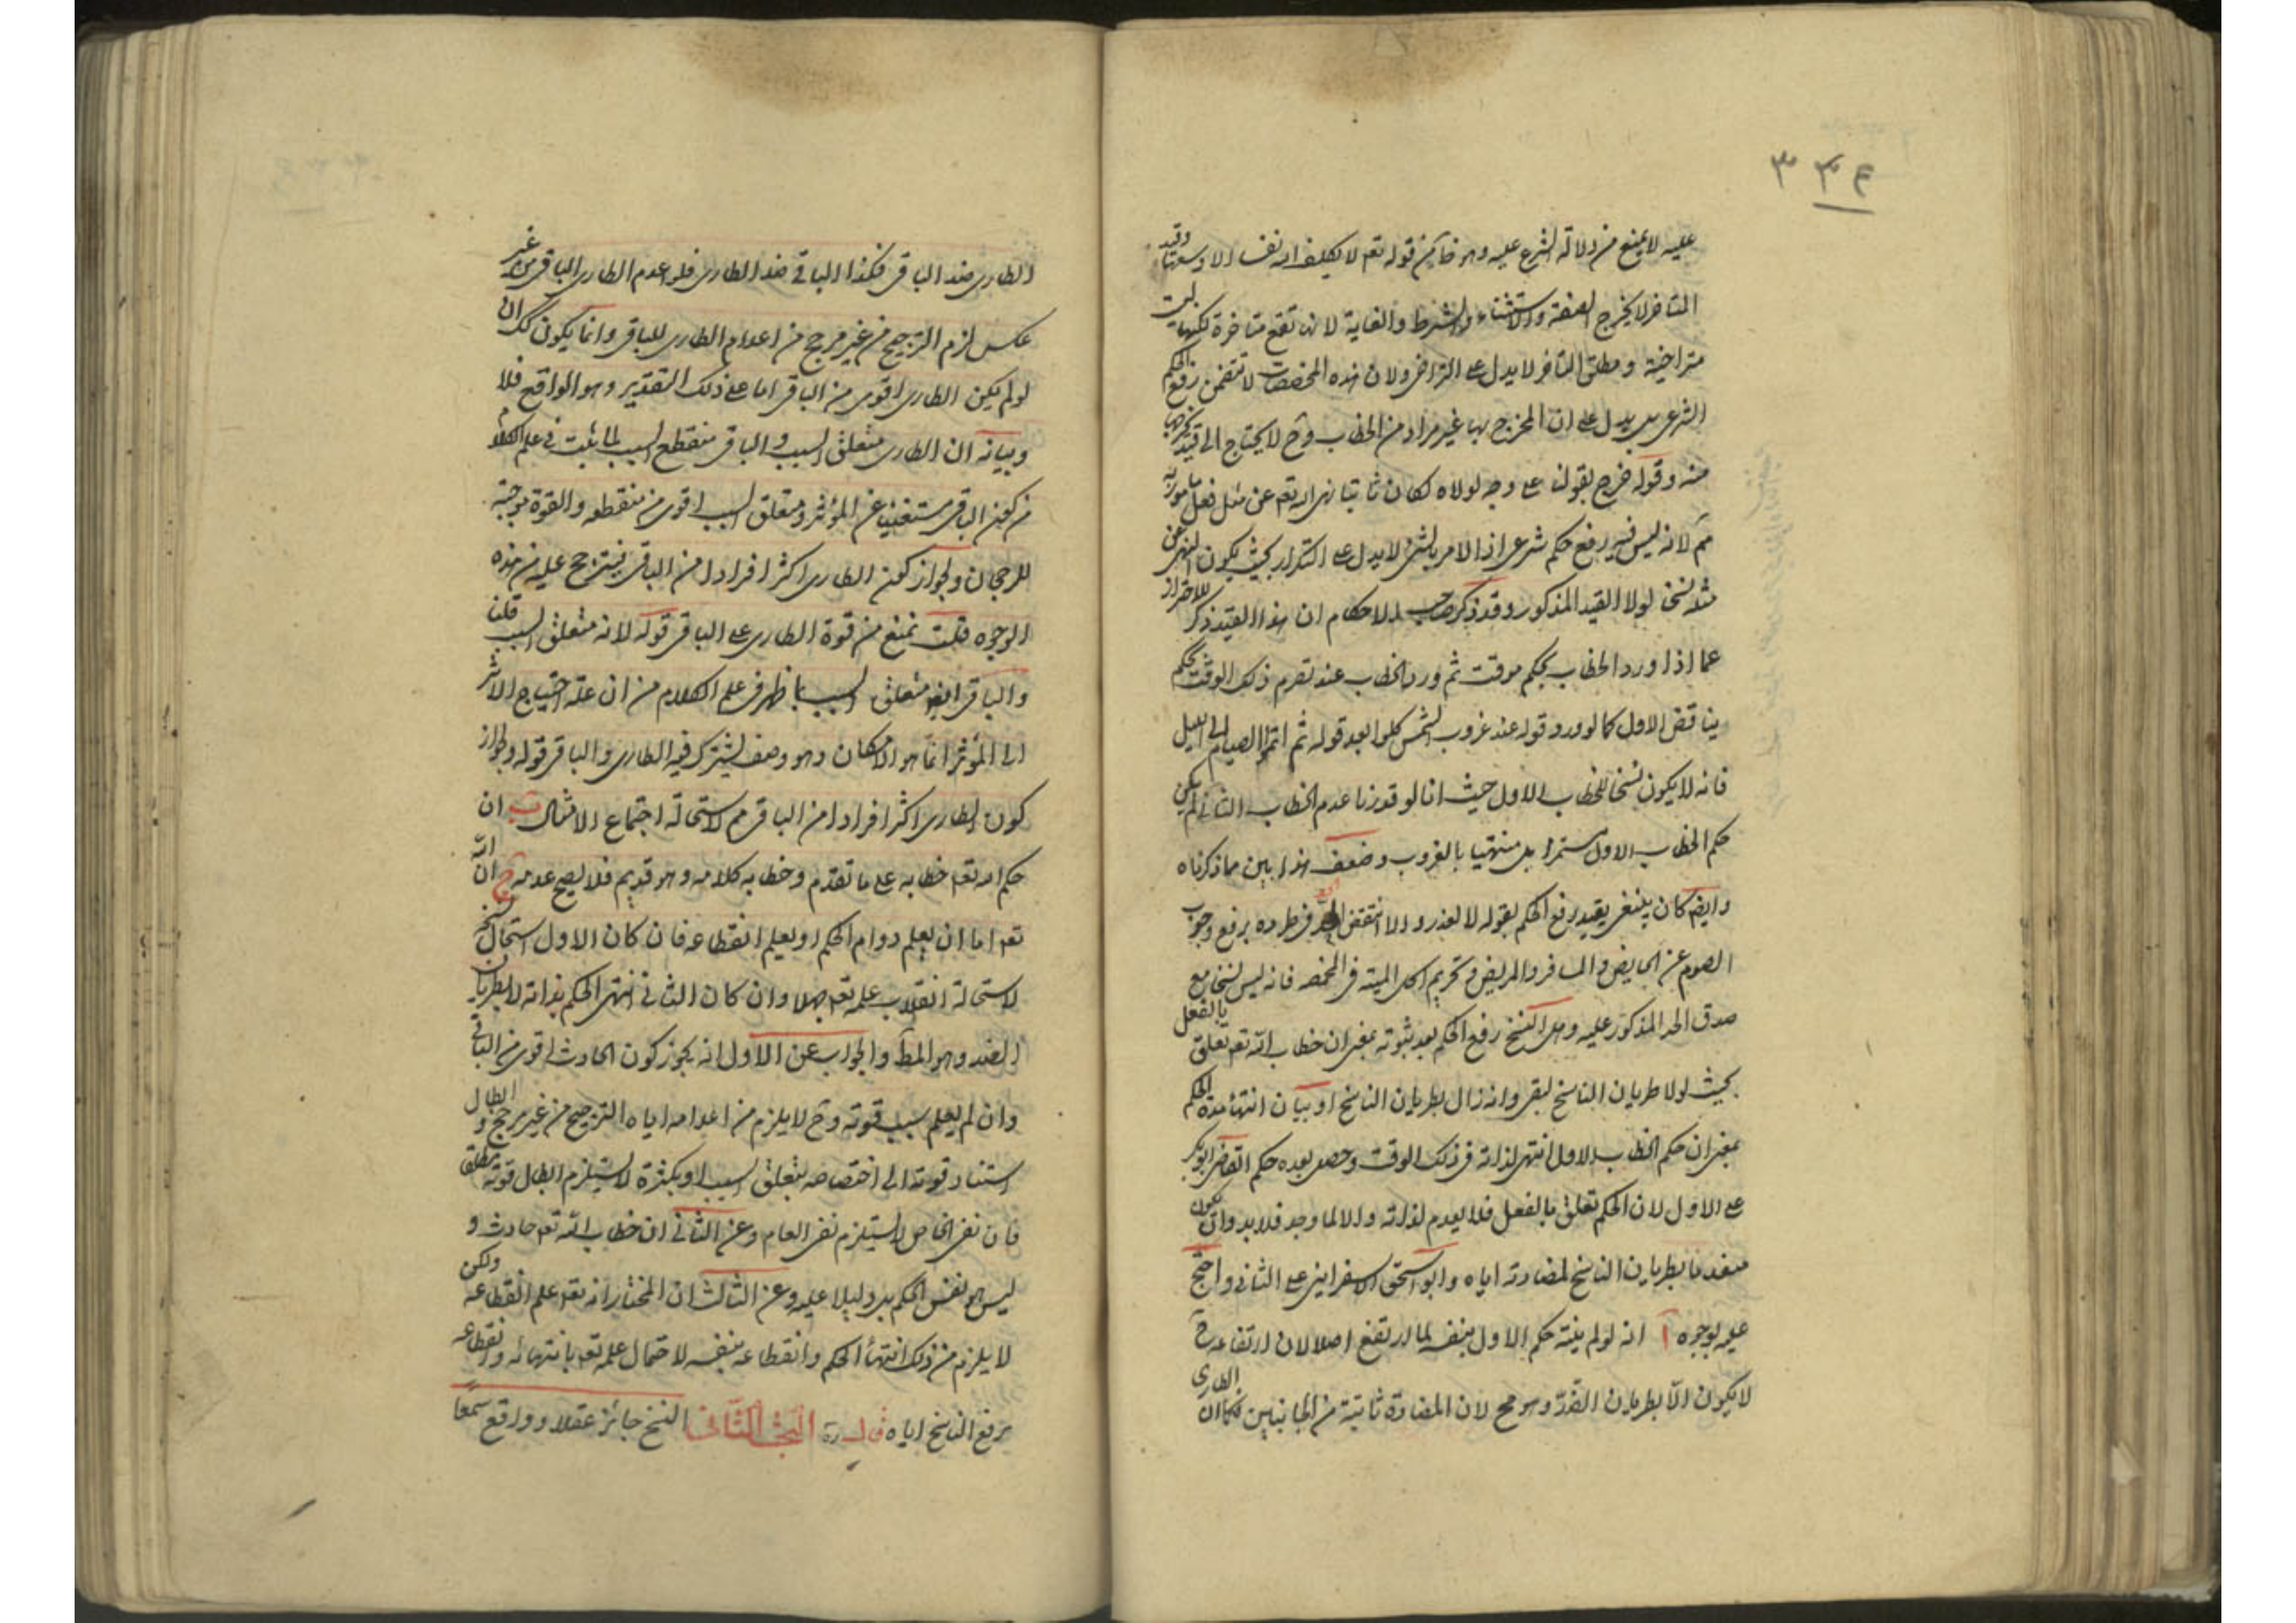 ٣٣٤
عليه لا يمنع من دلالة الشرع عليه وهو خا من قوله تعم لا يكلف الله نفسا الا وسعها وقيد
المتاخر لا يخرج الصفة والاستثناء والشرط والغاية لانها تقع متاخرة لكنها ليست
متراخية ومطلق التاخر لا يدل على التراخى ولان هذه المخصصات لا تتضمن رفع الحكم
الشرعى بل يدل على ان المخرج بها غير مراد من الخطاب وح لا يحتاج الى قيد يخرجها
منه وقوله خرج بقولنا على وجه لولاه لكان ثابتا نهى الله تعم عن مثل فعل مأمور به
مم لانه ليس فيه رفع حكم شرعى اذ الامر بالشئ لا يدل على التكرار بحيث يكون النهى عن
مثله نسخا لولا القيد المذكور وقد ذكر صاحب الاحكام ان هذا القيد ذكر للاحتراز
عما اذا ورد الخطاب بحكم موقت ثم ورد الخطاب عند تصرم ذلك الوقت بحكم
يناقض الاول كما لو ورد قوله عند غروب الشمس كلوا بعد قوله ثم اتموا الصيام الى الليل
فانه لا يكون نسخا للخطاب الاول حيث انا لو قدرنا عدم الخطاب الثانى لم يكن
حكم الخطاب الاول مستمرا بل منتهيا بالغروب وضعف هذا بين مما ذكرناه
وايضا كان ينبغى يقيد رفع الحكم بقوله لا لعذر والا انتقض الحد فى طرده برفع وجوب
الصوم عن الحايض والمسافر والمريض وتحريم اكل الميتة فى المخمصه فانه ليس نسخا مع
صدق الحد المذكور عليه وهل النسخ رفع الحكم بعد ثبوته بمعنى ان خطاب الله تعم تعلق بالفعل
بحيث لولا طريان الناسخ لبقى وانه زال بطريان الناسخ او بيان انتهاء مدة الحكم
بمعنى ان حكم الخطاب الاول انتهى لذاته فى ذلك الوقت وحصل بعده حكم القاضى ابو بكر
على الاول لان الحكم تعلق بالفعل فلا يعدم لذاته والا لما وجد فلا بد وان يكون
منعدما بطريان الناسخ لمضادته اياه وابو اسحق الاسفراينى على الثانى واحتج
عليه بوجوه آ انه لو لم ينته حكم الاول بنفسه لما ارتفع اصلا لان ارتفاعه ح
لا يكون الا بطريان الضد وهو مح لان المضادة ثابتة من الجانبين فكما ان الطارى
الطارى ضد الباقى فكذا الباقى ضد الطارى فلو اعدم الطارى الباقى من غير
عكس لزم الترجيح من غير مرجح من اعدام الطارى للباقى وانما يكون كك ان
لو لم يكن الطارى اقوى من الباقى اما على ذلك التقدير وهو الواقع فلا
وبيانه ان الطارى متعلق السبب والباقى منقطع السبب لما يثبت فى علم الكلام
من كون الباقى مستغنيا عن المؤثر ومتعلق السبب اقوى من منقطعه والقوة موجبة
للرجحان ولجواز كون الطارى اكثر افرادا من الباقى فيترجح عليه من هذه
الوجوه قلت نمنع من قوة الطارى على الباقى قوله لانه متعلق السبب قلنا
والباقى ايضا متعلق السبب لما ظهر فى علم الكلام من ان علة احتياج الاثر
الى المؤثر انما هو الامكان وهو وصف يشترك فيه الطارى والباقى قوله ولجواز
كون الطارى اكثر افرادا من الباقى مم لاستحالة اجتماع الامثال ب ان
حكم الله تعم خطابه على ما تقدم وخطابه كلامه وهو قديم فلا يصح عدمه ج ان الله
تعم اما ان يعلم دوام الحكم او يعلم انقطاعه فان كان الاول استحال نسخه
لاستحالة انقلاب علمه تعم جهلا وان كان الثانى انتهى الحكم بذاته لا بطريان
الضد وهو المط والجواب عن الاول انه يجوز كون الحادث اقوى من الباقى
وان لم يعلم سبب قوته وح لا يلزم من اعدامه اياه الترجيح من غير مرجح وابطال
استناد قوته الى اختصاصه بتعلق السبب او بكثرة لا يستلزم ابطال قوته مطلقا
فان نفى الخاص لا يستلزم نفى العام وعن الثانى ان خطاب الله تعم حادث و
ليس هو نفس الحكم بل دليلا عليه وعن الثالث ان المختار انه تعم علم انقطاعه ولكن
لا يلزم من ذلك انتهاء الحكم وانقطاعه بنفسه لاحتمال علمه تعم بانتهائه وانقطاعه
برفع الناسخ اياه قال ره البحث الثانى النسخ جائز عقلا وواقع سمعا